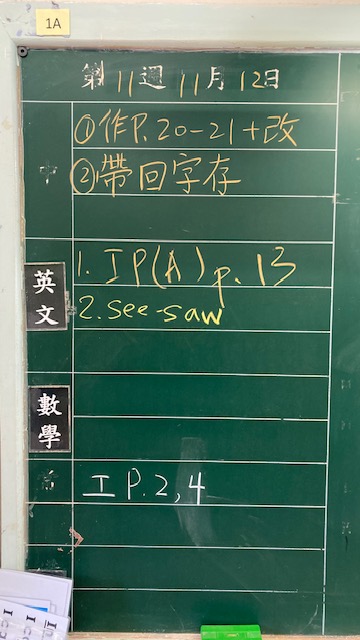 1A
第11週 11月12日
中
①作P.20-21+改
②帶回字存
英文
1. 工P(A) p.13
2. see-saw
數學
工P.2,4